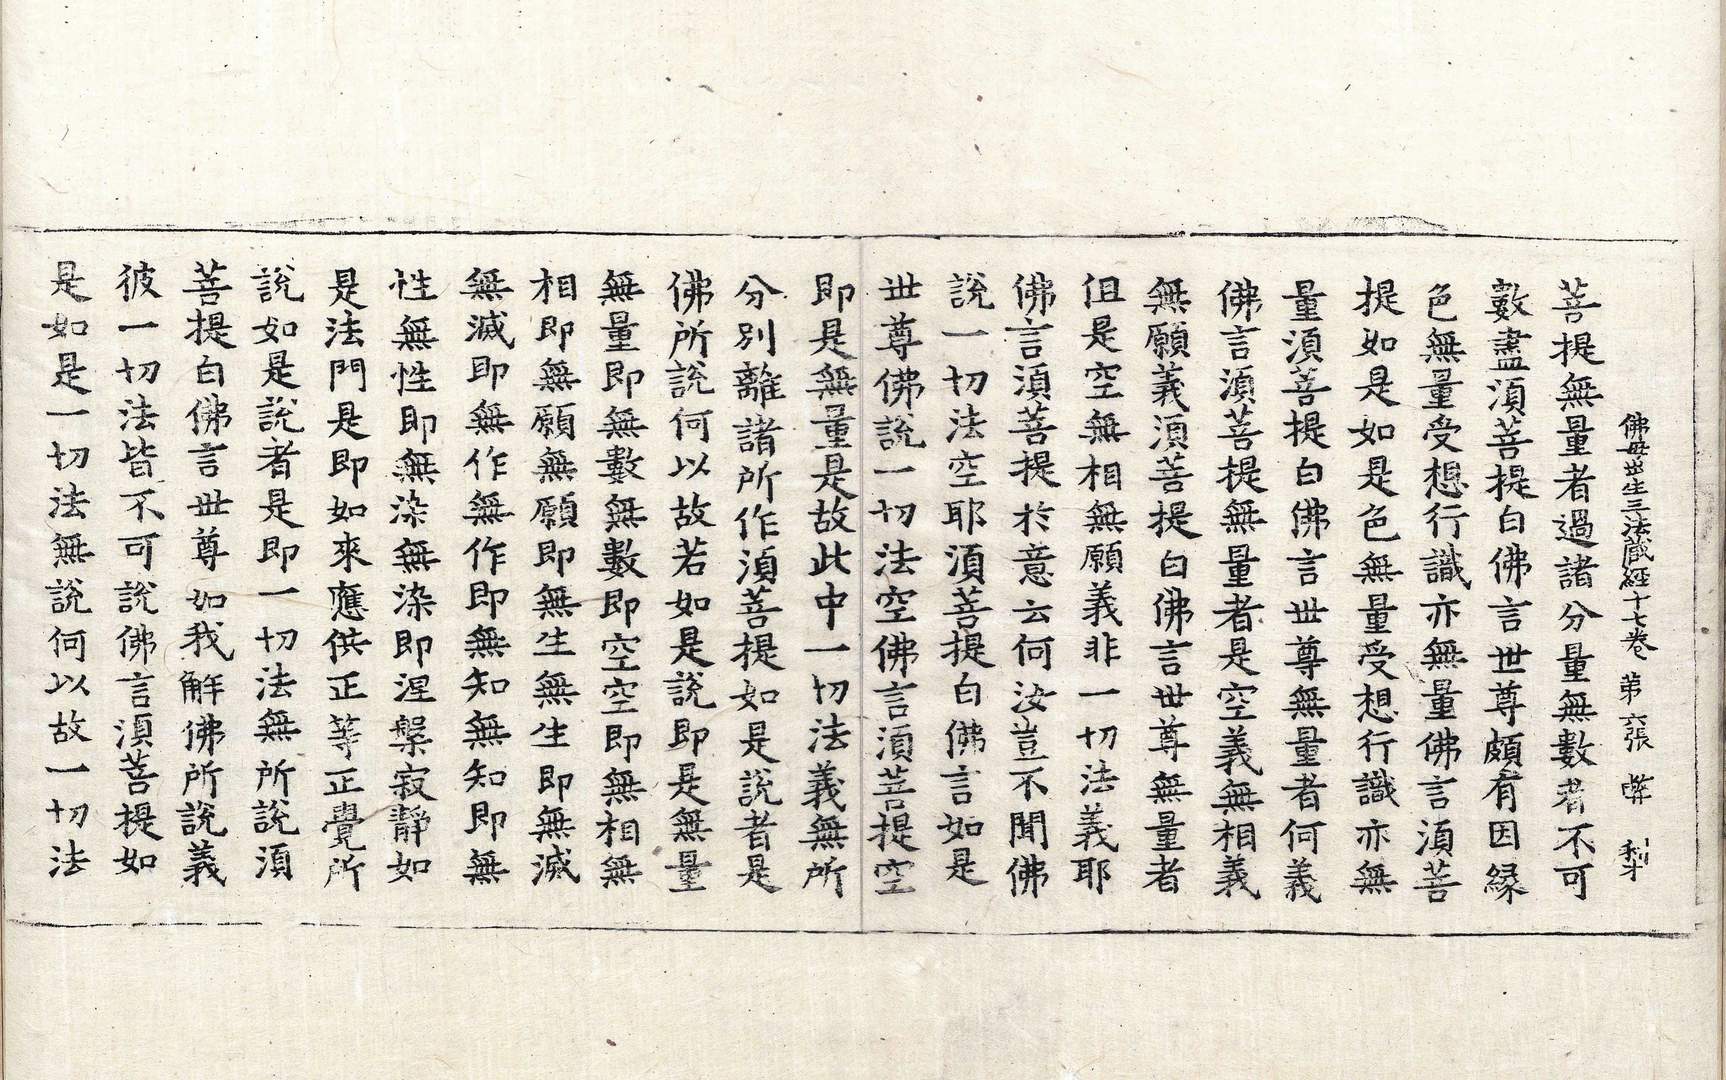 佛母出生三法藏經十七卷 第六張
菩提無量者過諸分量無數者不可
數盡湏菩提白佛言世尊頗有因縁
色無量受想行識亦無量佛言湏菩
提如是如是色無量受想行識亦無
量湏菩提白佛言世尊無量者何義
佛言湏菩提無量者是空義無相義
無願義湏菩提白佛言世尊無量者
但是空無相無願義非一切法義耶
佛言湏菩提於意云何汝豈不聞佛
說一切法空耶湏菩提白佛言如是
世尊佛說一切法空佛言湏菩提空
即是無量是故此中一切法義無所
分別離諸所作湏菩提如是說者是
佛所說何以故若如是說即是無量
無量即無數無數即空空即無相無
相即無願無願即無生無生即無滅
無滅即無作無作即無知無知即無
性無性即無染無染即涅槃寂靜如
是法門是即如來應供正等正覺所
說如是說者是即一切法無所說湏
菩提白佛言世尊如我解佛所說義
彼一切法皆不可說佛言湏菩提如
是如是一切法無說何以故一切法